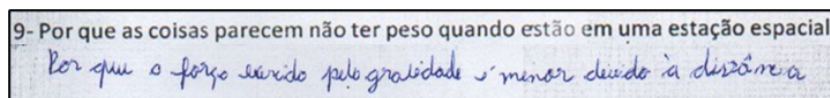 9- Por que as coisas parecem não ter peso quando estão em uma estação espacial
Por que a força exercida pela gravidade é menor devido à distância